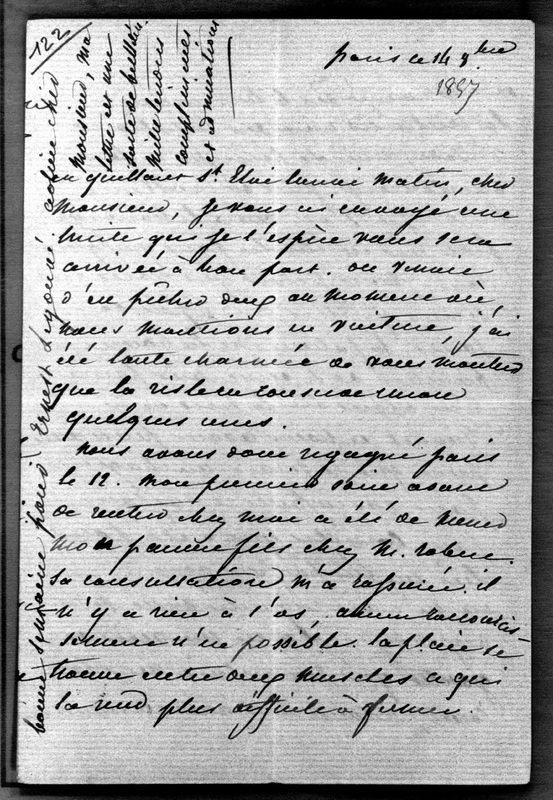 122
paris ce 14 9bre
1857
en quittant St Eloi lundi matin, cher
Monsieur, je vous ai envoyé une
truite qui je l'espère vous sera
arrivée à bon port. on venait
d'en pêcher deux au moment où
nous montions en voiture, j'ai
été toute charmée de vous montrer
que la risle en
quelques unes.
nous avons donc regagné paris
le 12. mon premier soin avant
de rentrer chez moi a été de mener
mon pauvre fils chez M. robert.
sa consultation m'a rassurée. il
n'y a rien à l'os, aucun raccourcis-
sement n'est possible. la plaie se
trouve entre deux muscles ce qui
la rend plus difficile à fermer.
bonne semaine
Ernest Legouvé
cher
monsieur, ma
lettre est une
sorte de bulletin
mille bonnes
complimens
et admirations